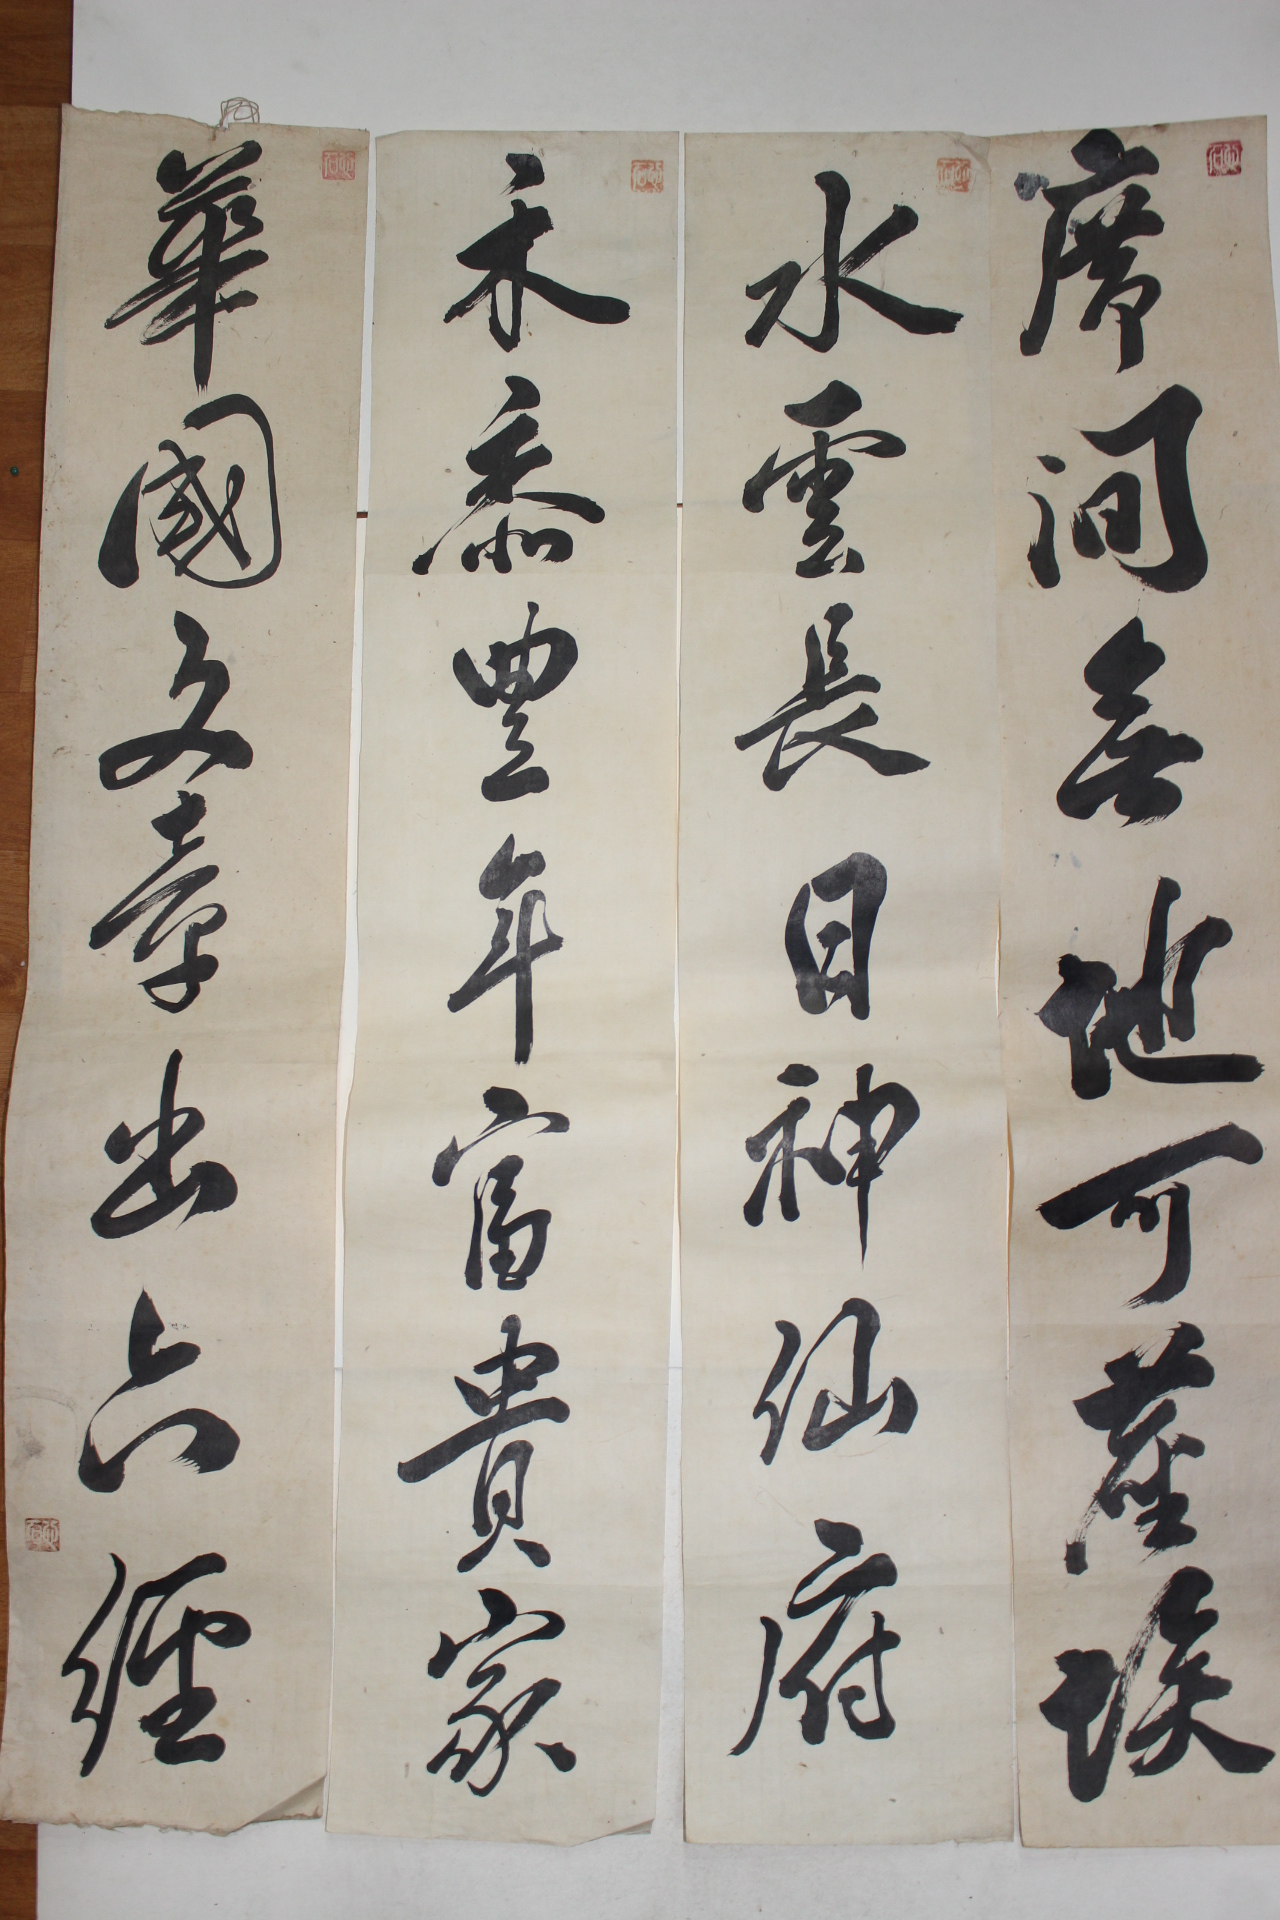 席間無地可塵埃
水雲長日神仙府
禾黍豊年富貴家
華國文章出六經